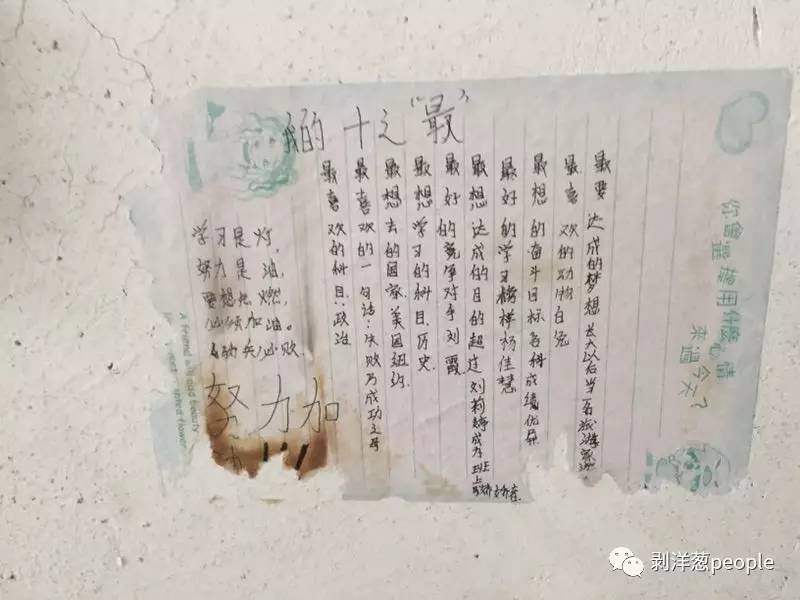 我的十之“最”
你會選擇用什麼心情
來過今天?
最要达成的梦想 长大以后当一名旅游家
最喜欢的动物白兔
最想的奋斗目标各科成绩优异
最好的学习榜样杨佳慧
最想达成的目的超过刘莉婷成为班上
最好的竞争对手刘霞
最想学习的科目历史
最想去的国家美国纽约
最喜欢的一句话:失败乃成功之母
最喜欢的科目:政治
学习是灯,
努力是油,
要想燃,
必须加油。
兵必败
努力加
!!!
A friend
剥洋葱people